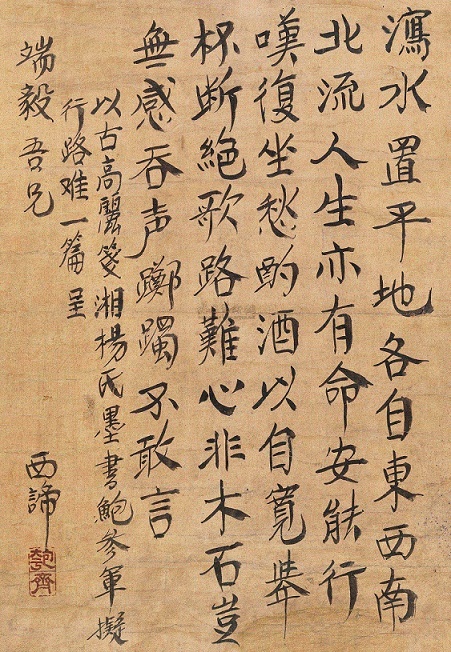 瀉水置平地各自東西南
北流人生亦有命安能行
嘆復坐愁酌酒以自寬舉
杯断絕歌路難心非木石豈
無感吞声躑躅不敢言
以古高麗箋湘楊氏墨書鮑参軍擬
行路难一篇呈
端毅吾兄
西諦